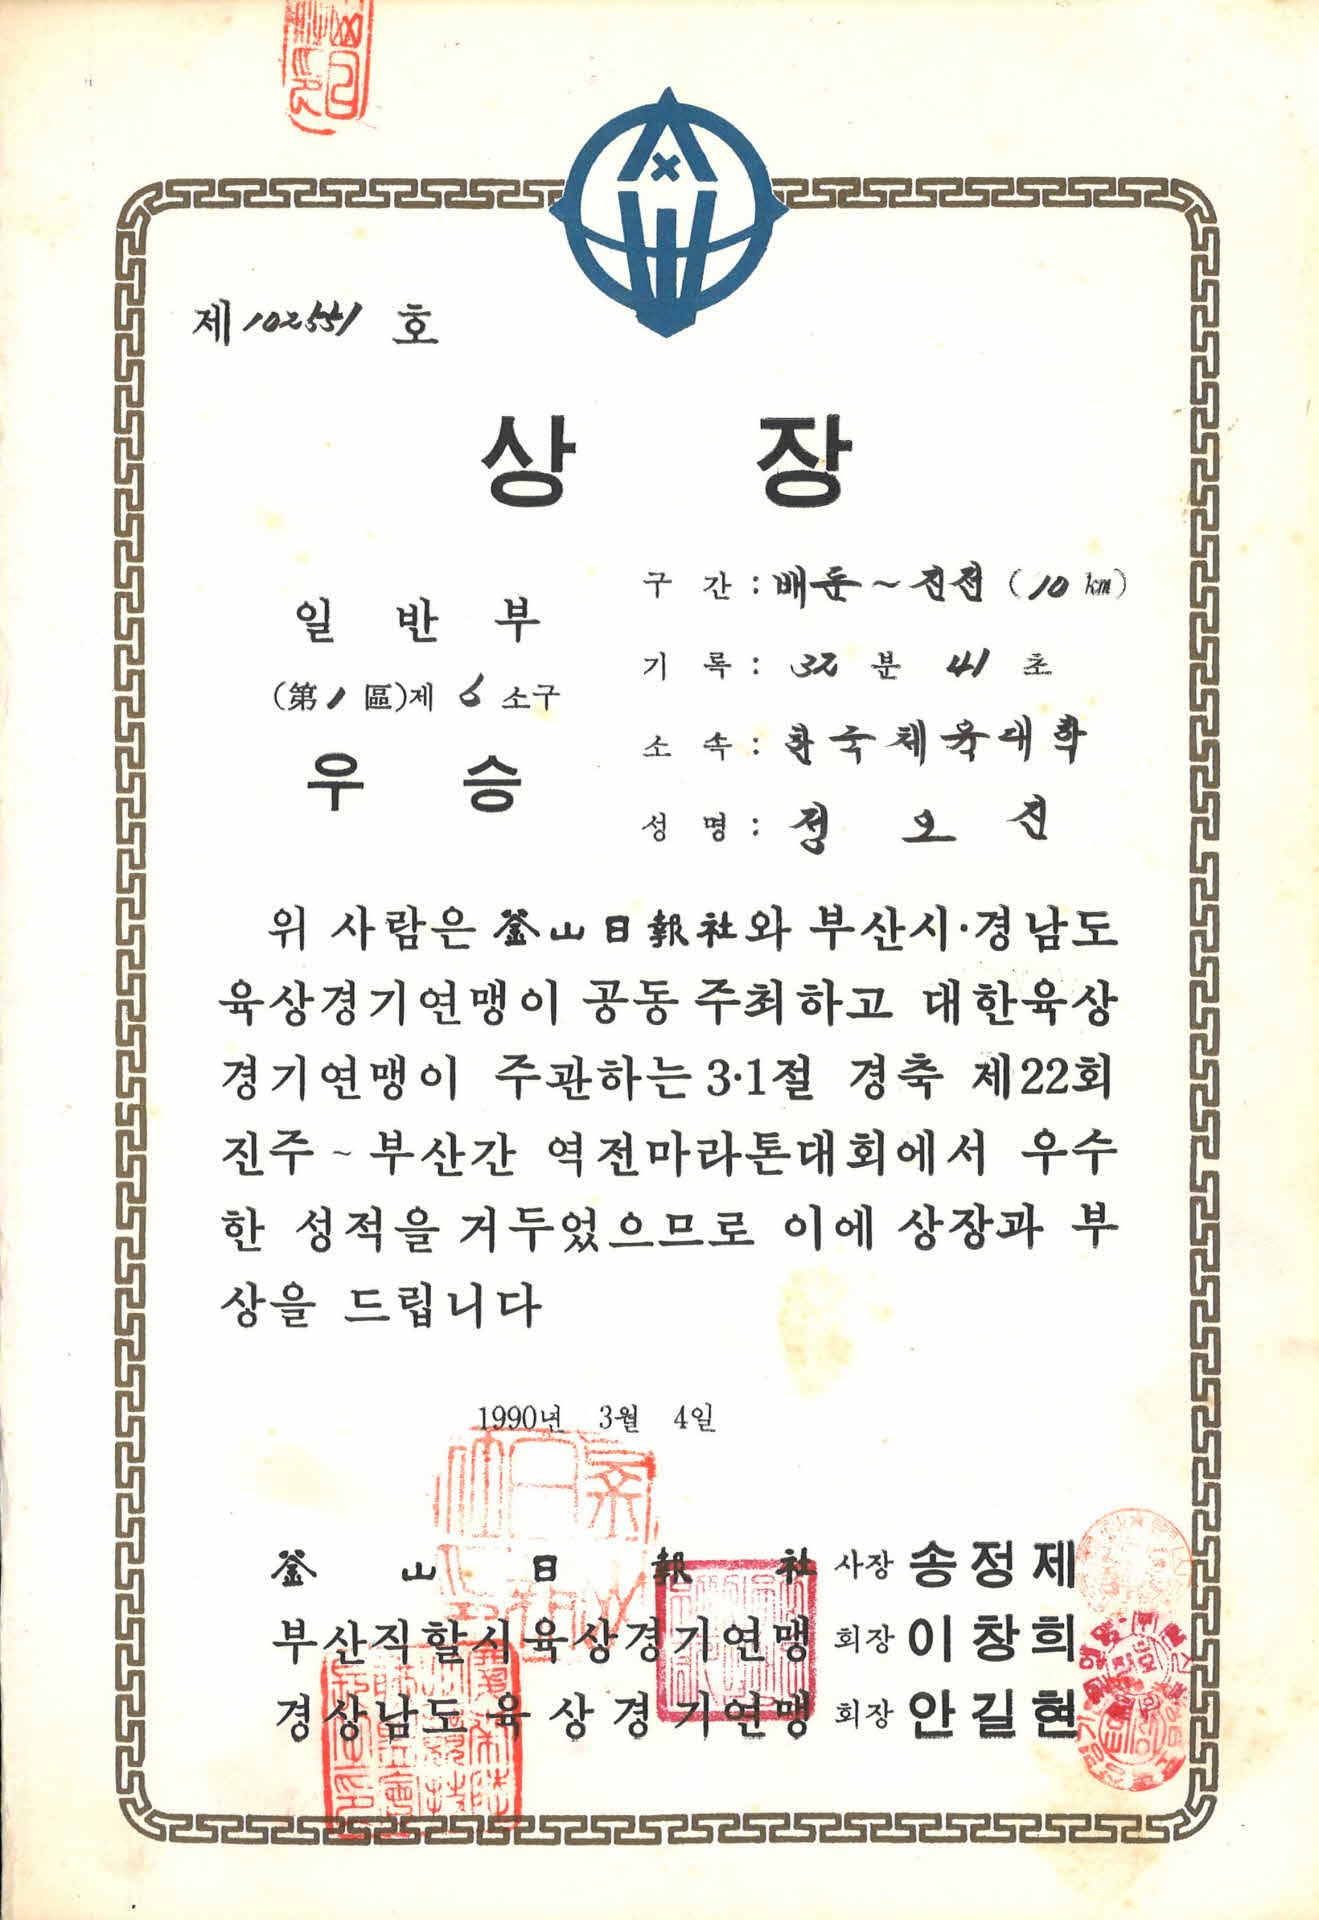 제 102551 호
상 장
일 반 부
(第1區)제 6 소구
우 승
구 간 : 배둔 ~ 진전 (10 km)
기 록 : 32 분 41 초
소 속 : 한국체육대학
성 명 : 정 오 진
위 사람은 釜山日報社와 부산시·경남도
육상경기연맹이 공동 주최하고 대한육상
경기연맹이 주관하는 3·1절 경축 제22회
진주 ~ 부산간 역전마라톤대회에서 우수
한 성적을 거두었으므로 이에 상장과 부
상을 드립니다
1990년 3월 4일
釜山日報社 사장 송정제
부산직할시육상경기연맹 회장 이창희
경상남도육상경기연맹 회장 안길현